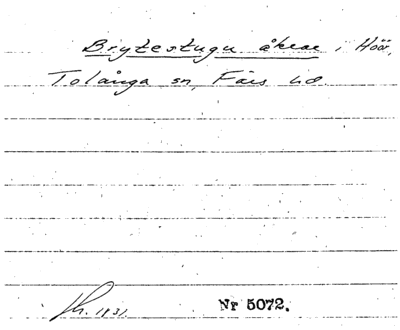 Brytestugu åkrar, i Höör,
Tolånga sn, Färs hd.
1931.
Nr 5072.